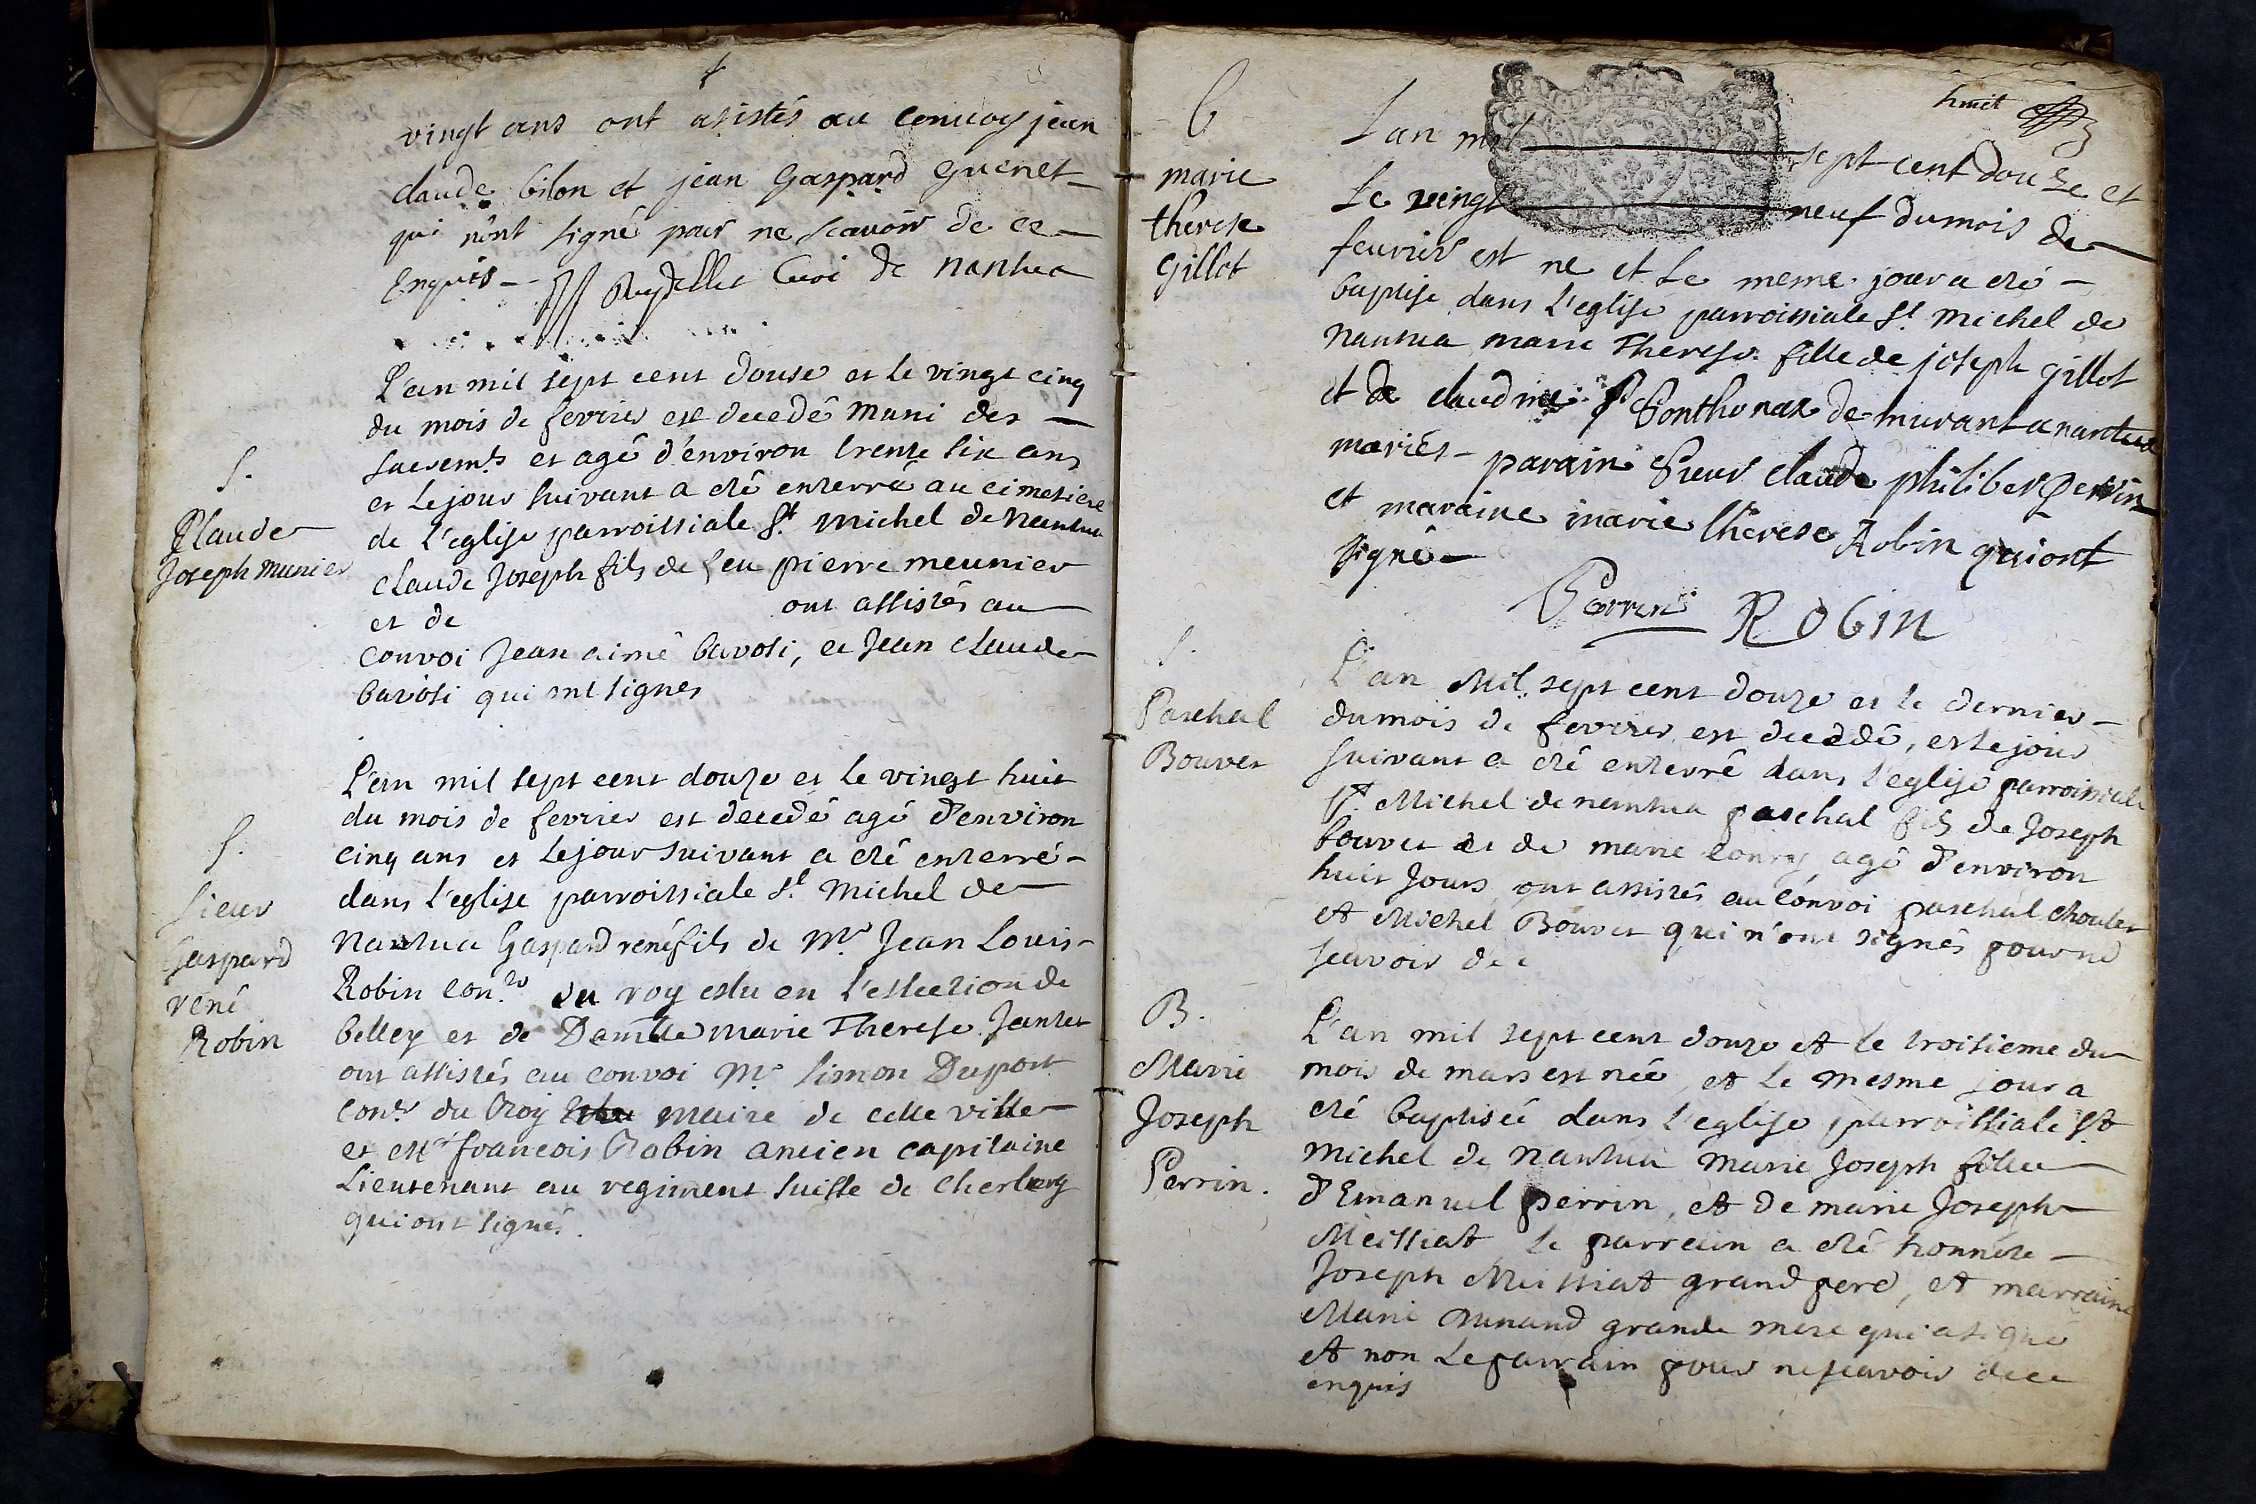 vingt ans ont asistés au convoy jean
claude bilon et jean Gaspard Guenet
qui n'ont signé pour ne scavoir de ce
enquis - Curé de nantua
L'an mil sept cent douse et le vingt cinq
du mois de fevrier est decedé muni des
sacrem.ts et agé d'environ trente six ans
et le jour suivant a eté enterré au cimetiere
S.
de l'eglise parroissiale S.t Michel de Nantua
Claude
Joseph munier
claude Joseph fils de feu pierre meunier
et de ont assistés au
convoi Jean aimé bavosi, et Jean claude
bavosi qui ont signes
L'an mil sept cent douze et le vingt huit
du mois de fevrier est decedé agé d'environ
S.
cinq ans et le jour suivant a eté enterré
dans l'eglise parroissiale S.t Michel de
Sieur
Gaspard
rené
Robin
Nantua Gaspard rené fils de M.r Jean Louis
Robin con.er du roy eslu en l'eslection de
belley et de Dam.lle Marie Therese Jantet
ont assistés au convoi M.r Simon Duport
con.er du Roy maire de cette ville
et M.r francois Robin ancien capitaine
Lieutenant au regiment suisse de
qui ont signés.
huit
b
marie
therese
Gillot
L'an mil sept cent douze et
Le vingt neuf du mois de
feuvrier est ne et le meme jour a eté
baptise dans l'eglise parroissiale S.t Michel de
Nantua marie Therese fille de joseph gillot
et de claudine Ponthonax demurant a nantua
mariés - parain Sieur claude philibert Perrin
et maraine marie therese Robin qui ont
signé
Perrin ROBIN
S.
Paschal
Bouvet
L'an Mil sept cent douze et le dernier
du mois de fevrier est decedé, et le jour
suivant a eté enterré dans l'eglise parroissiale
S.t Michel de nantua paschal fils de Joseph
bouvet et de marie agé d'environ
huit Jours, ont assistés au convoi paschal
et Michel Bouvet qui n'ont signés pour ne
scavoir de c
B.
Marie
Joseph
Perrin.
L'an mil sept cent douze et le troisieme du
mois de mars est née, et le mesme jour a
eté baptisée dans l'eglise parroissiale S.t
Michel de Nantua Marie Joseph fille
d'Emanuel perrin, et de marie Joseph
Meissiat, le parrain a eté honnete
Joseph Meissiat grand pere, et marraine
Marie grande mere qui a signé
et non le parrain pour ne scavoir de ce
enquis